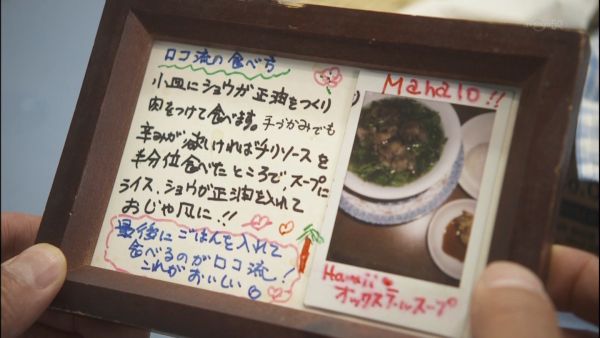 ロコ流の食べ方
小皿にショウガ正油をつくり
肉をつけて食べます。手づかみでも
辛みが欲しければチリソースを
半分位食べたところで、スープに
ライス、ショウガ正油を入れて
おじや風に!!
最後にごはんを入れて
食べるのがロコ流!
これがおいしい
Mahalo!!
Hawaii
オックステールスープ